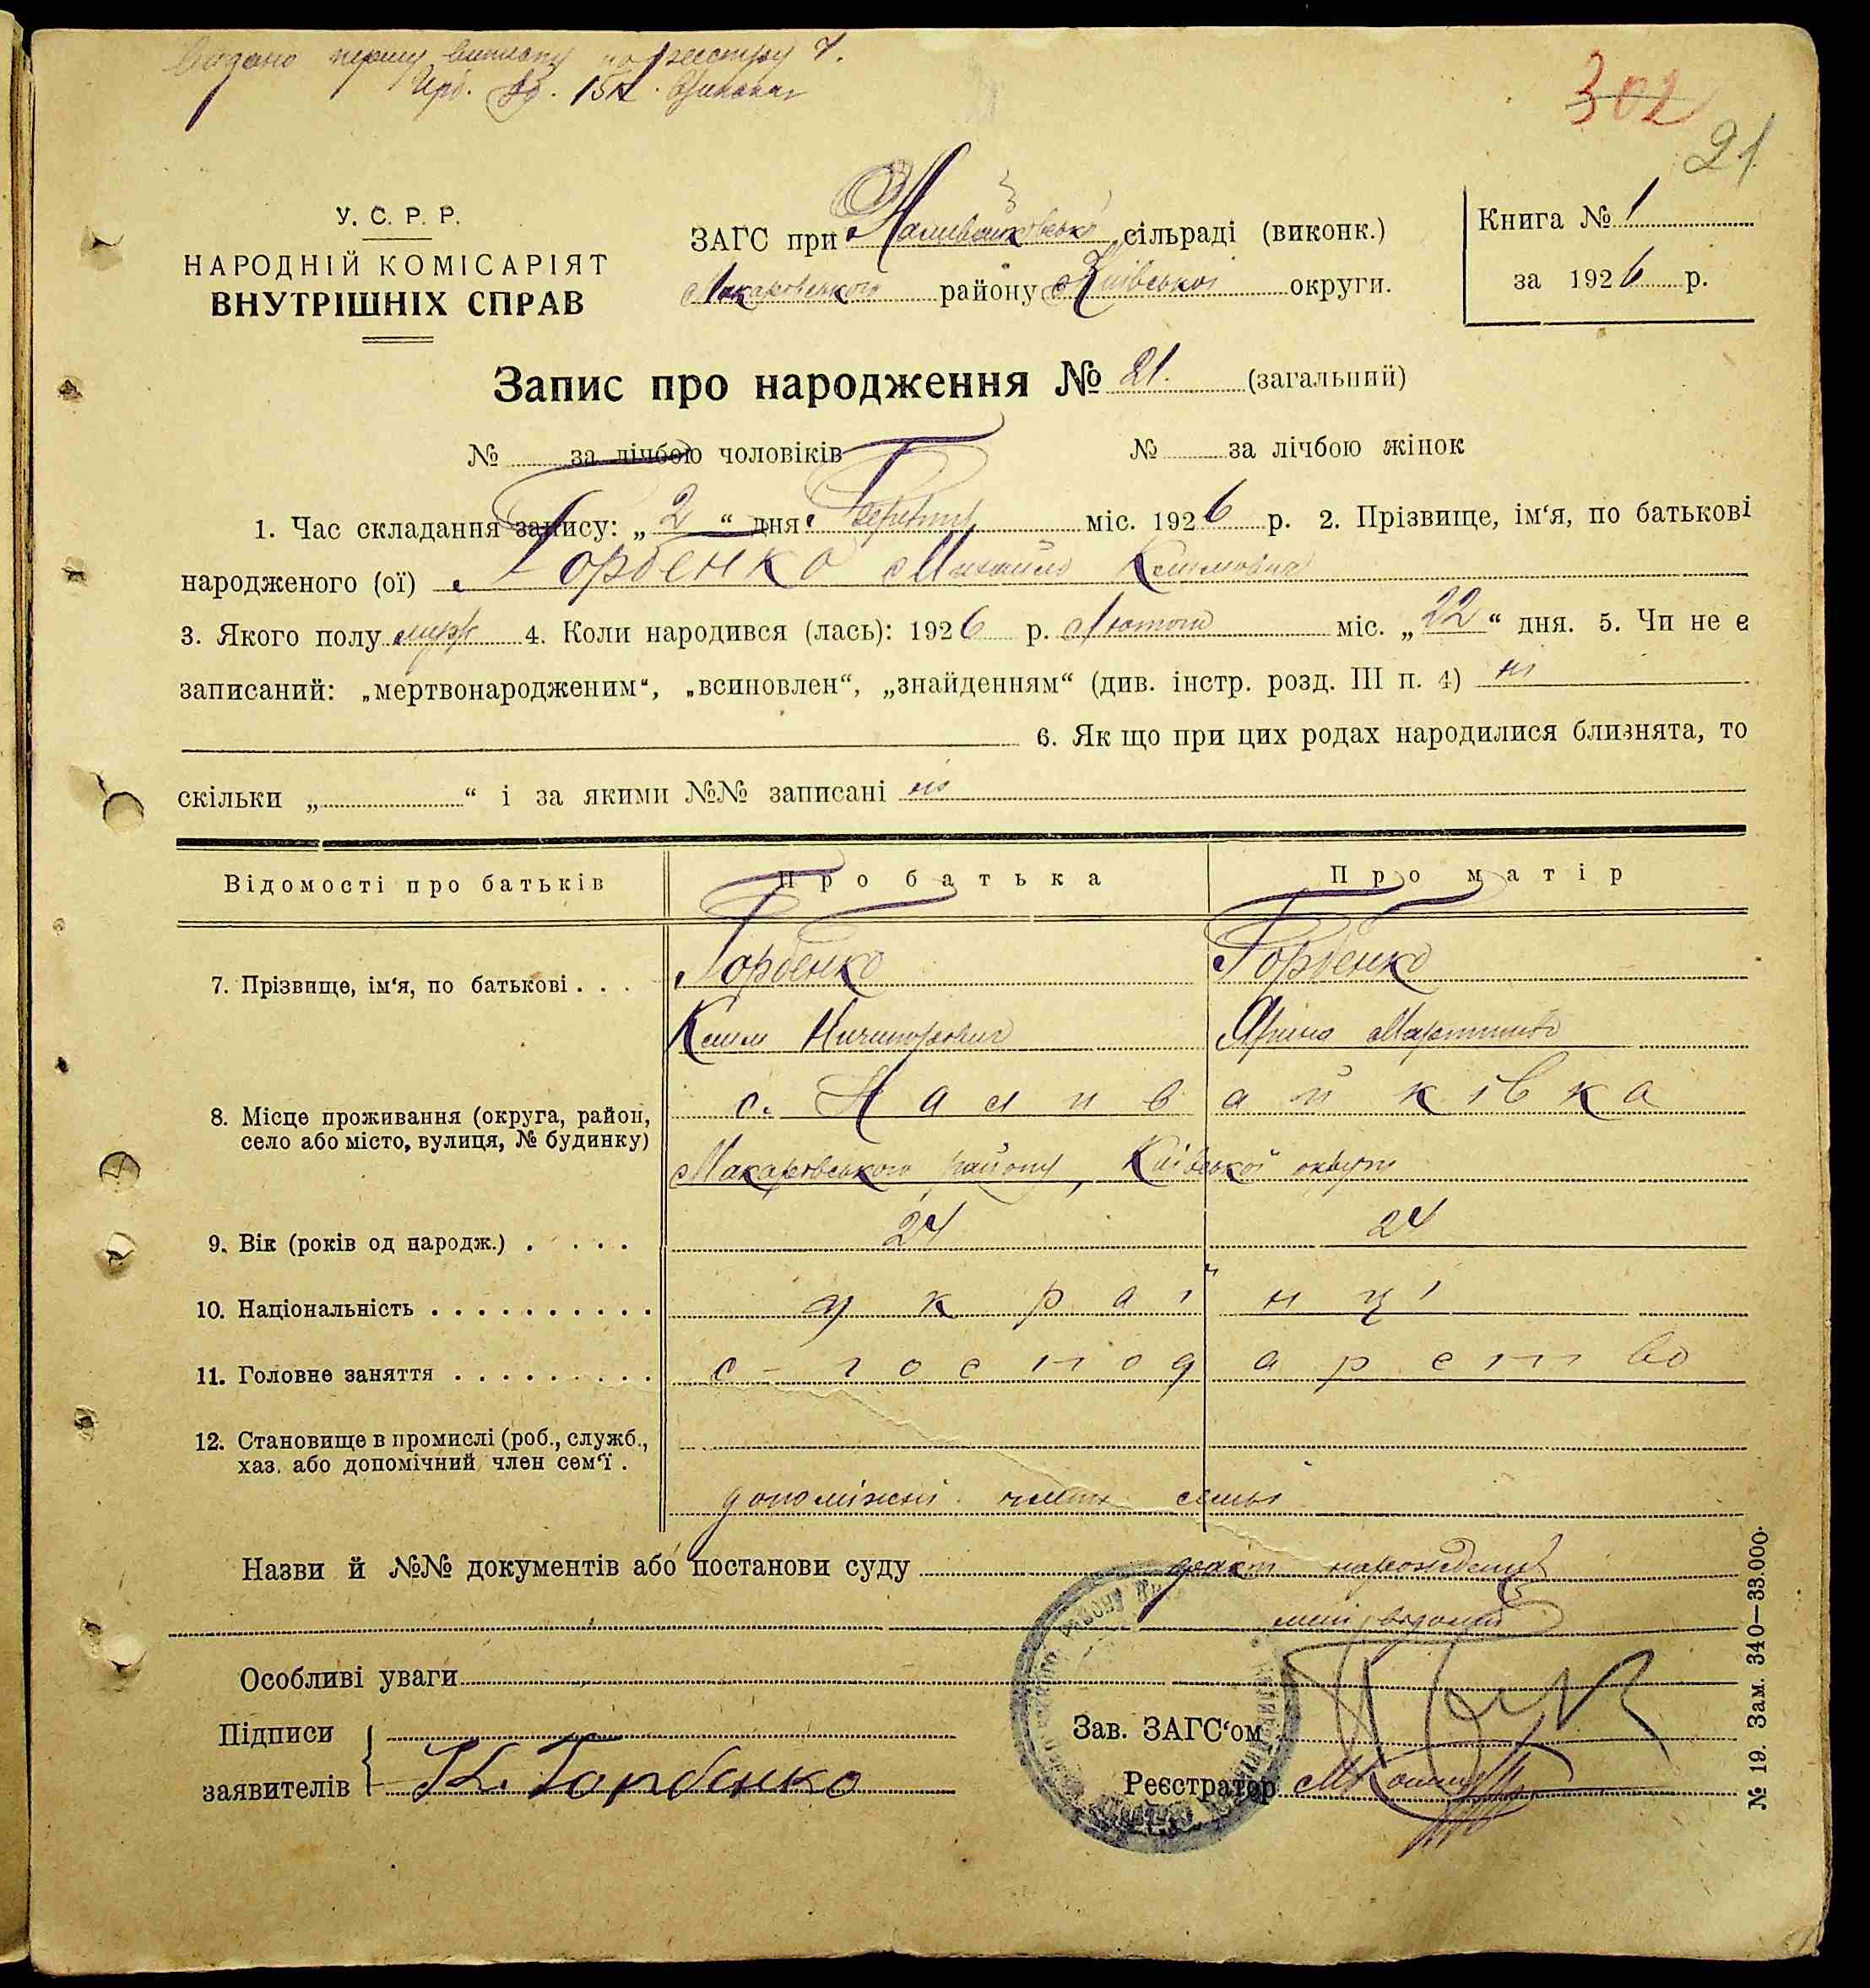 Видано першу виписку по реєстру
302
21
У. С. Р. Р.
НАРОДНІЙ КОМІСАРІЯТ
ВНУТРІШНІХ СПРАВ
ЗАГС при Наливайковській сільраді (виконк.)
Макаровського району Київської округи.
Книга № 1
за 1926 р.
Запис про народження № 21. (загальний)
№ за лічбою чоловіків № за лічбою жінок
1. Час складання запису: „2“ дня Березня міс. 1926 р. 2. Прізвище, ім‘я, по батькові
народженого (ої) Горбенко Михайло Климович
3. Якого полу муж 4. Коли народився (лась): 1926 р. Лютого міс. „22“ дня. 5. Чи не є
записаний: „мертвонародженим“, „всиновлен“, „знайденням“ (див. інстр. розд. III п. 4) ні
6. Як що при цих родах народилися близнята, то
скільки „ “ і за якими №№ записані ні
Відомості про батьків Про батька Про матір
7. Прізвище, ім‘я, по батькові . . . Горбенко Горбенко
Клим Ничипорович Ярина Мартинівна
8. Місце проживання (округа, район, с. Наливайківка
село або місто, вулиця, № будинку)
Макаровського району, Київської округи
9. Вік (років од народж.) . . . . . 24 24
10. Національність . . . . . . . . . . українці
11. Головне заняття . . . . . . . . . с-господарство
12. Становище в промислі (роб., служб.,
хаз. або допомічний член сем‘ї .
допоміжні члени семьі
Назви й №№ документів або постанови суду факт народження
мені відомий
Особливі уваги
Підписи
заявителів К. Горбенко
Зав. ЗАГС‘ом
Реєстратор
№ 19. Зам. 340—33.000.